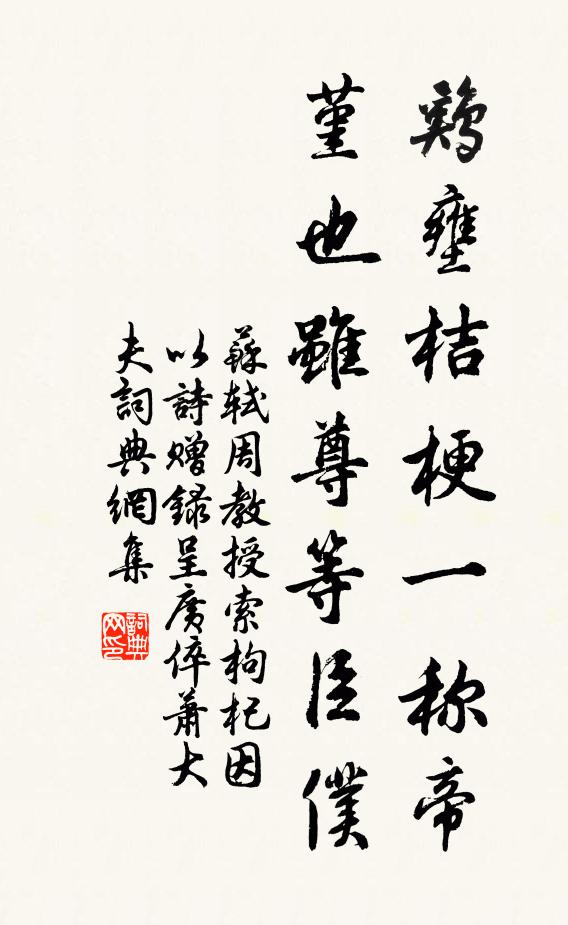 鷄壅桔梗一称帝
堇也雖尊等臣僕
蘇軾周教授索枸杞因
以詩赠録呈廣倅蕭大
夫詞典網集
詞典网印